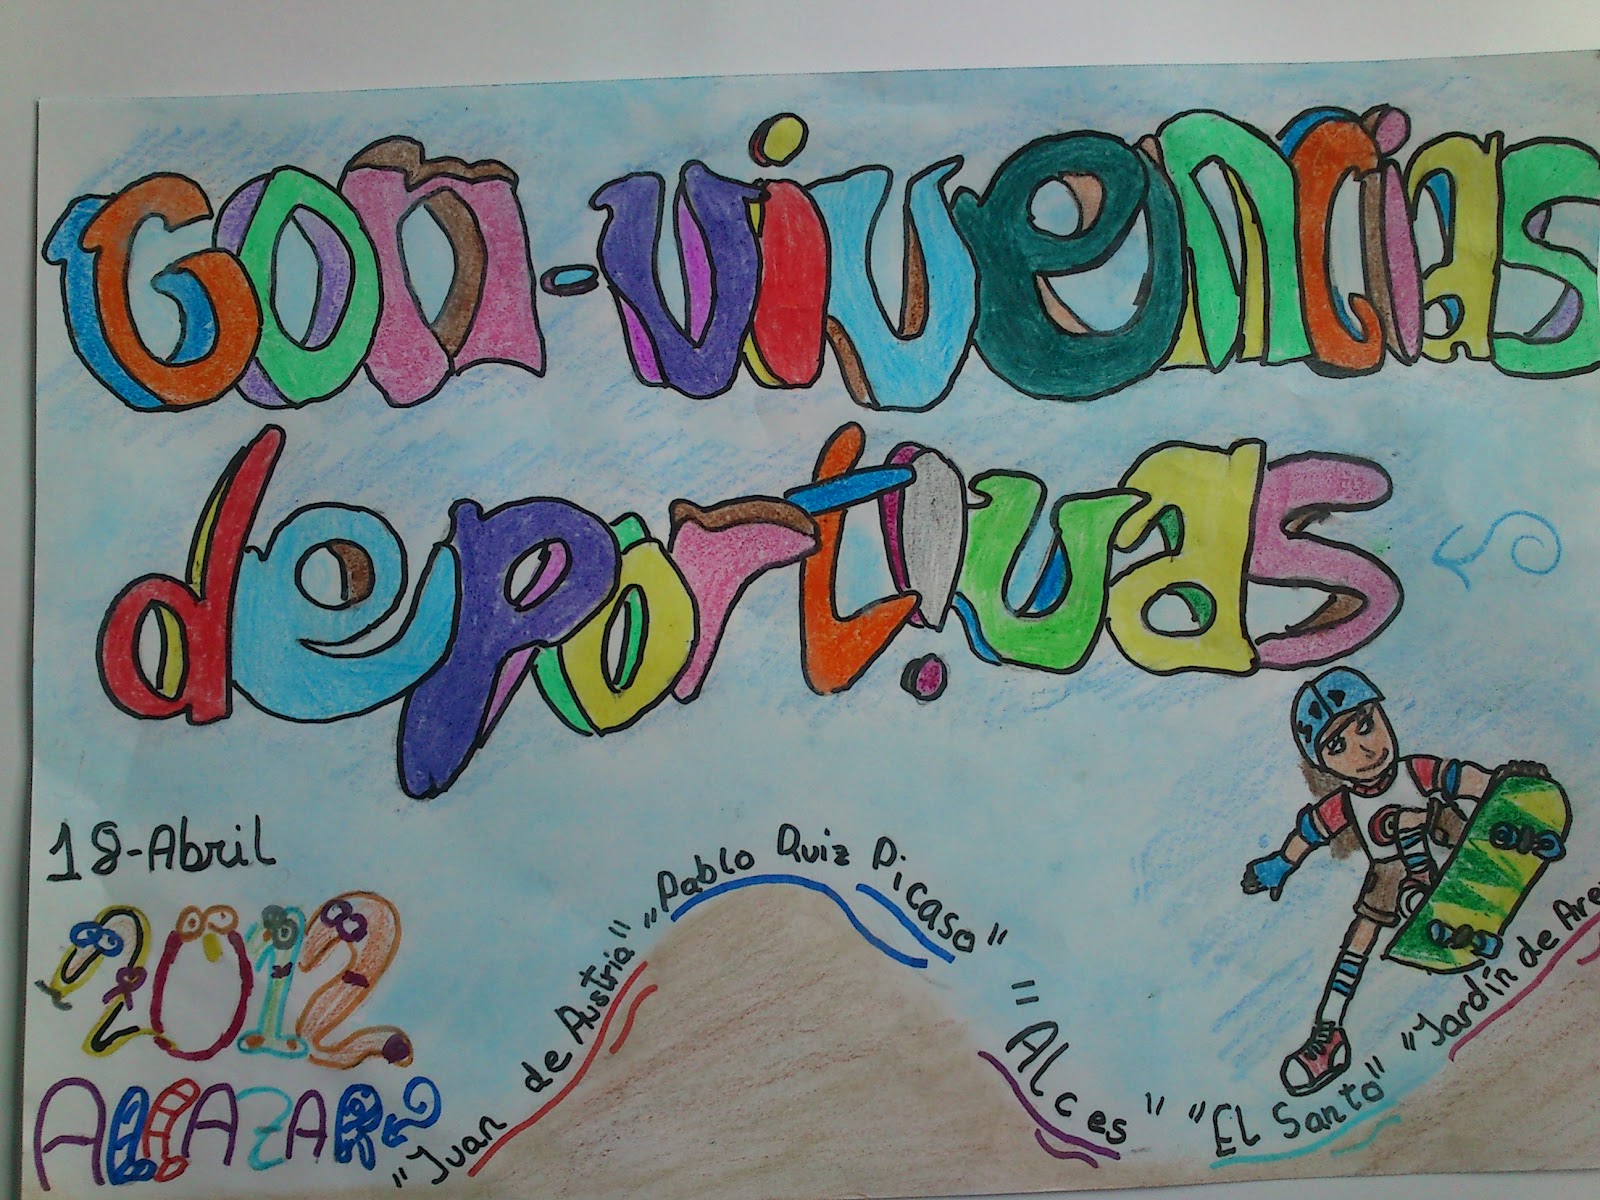 Con-vivencias
deportivas
18-Abril
2012
ALCAZAR
"Juan de Austria"
"Pablo Ruiz Picaso"
"Alces"
"El Santo"
"Jardín de